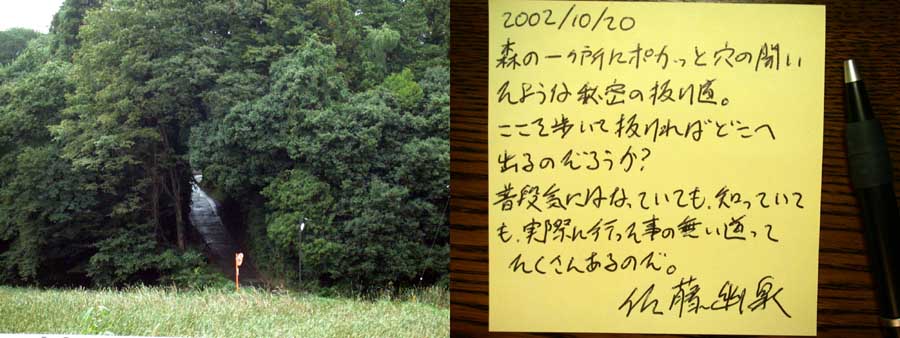 2002/10/20
森の一ヶ所にポカっと穴の開い
たような秘密の抜け道。
ここを歩いて抜ければどこへ
出るのだろうか?
普段気にはなっていても、知っていて
も、実際に行った事の無い道って
たくさんあるのだ。
佐藤